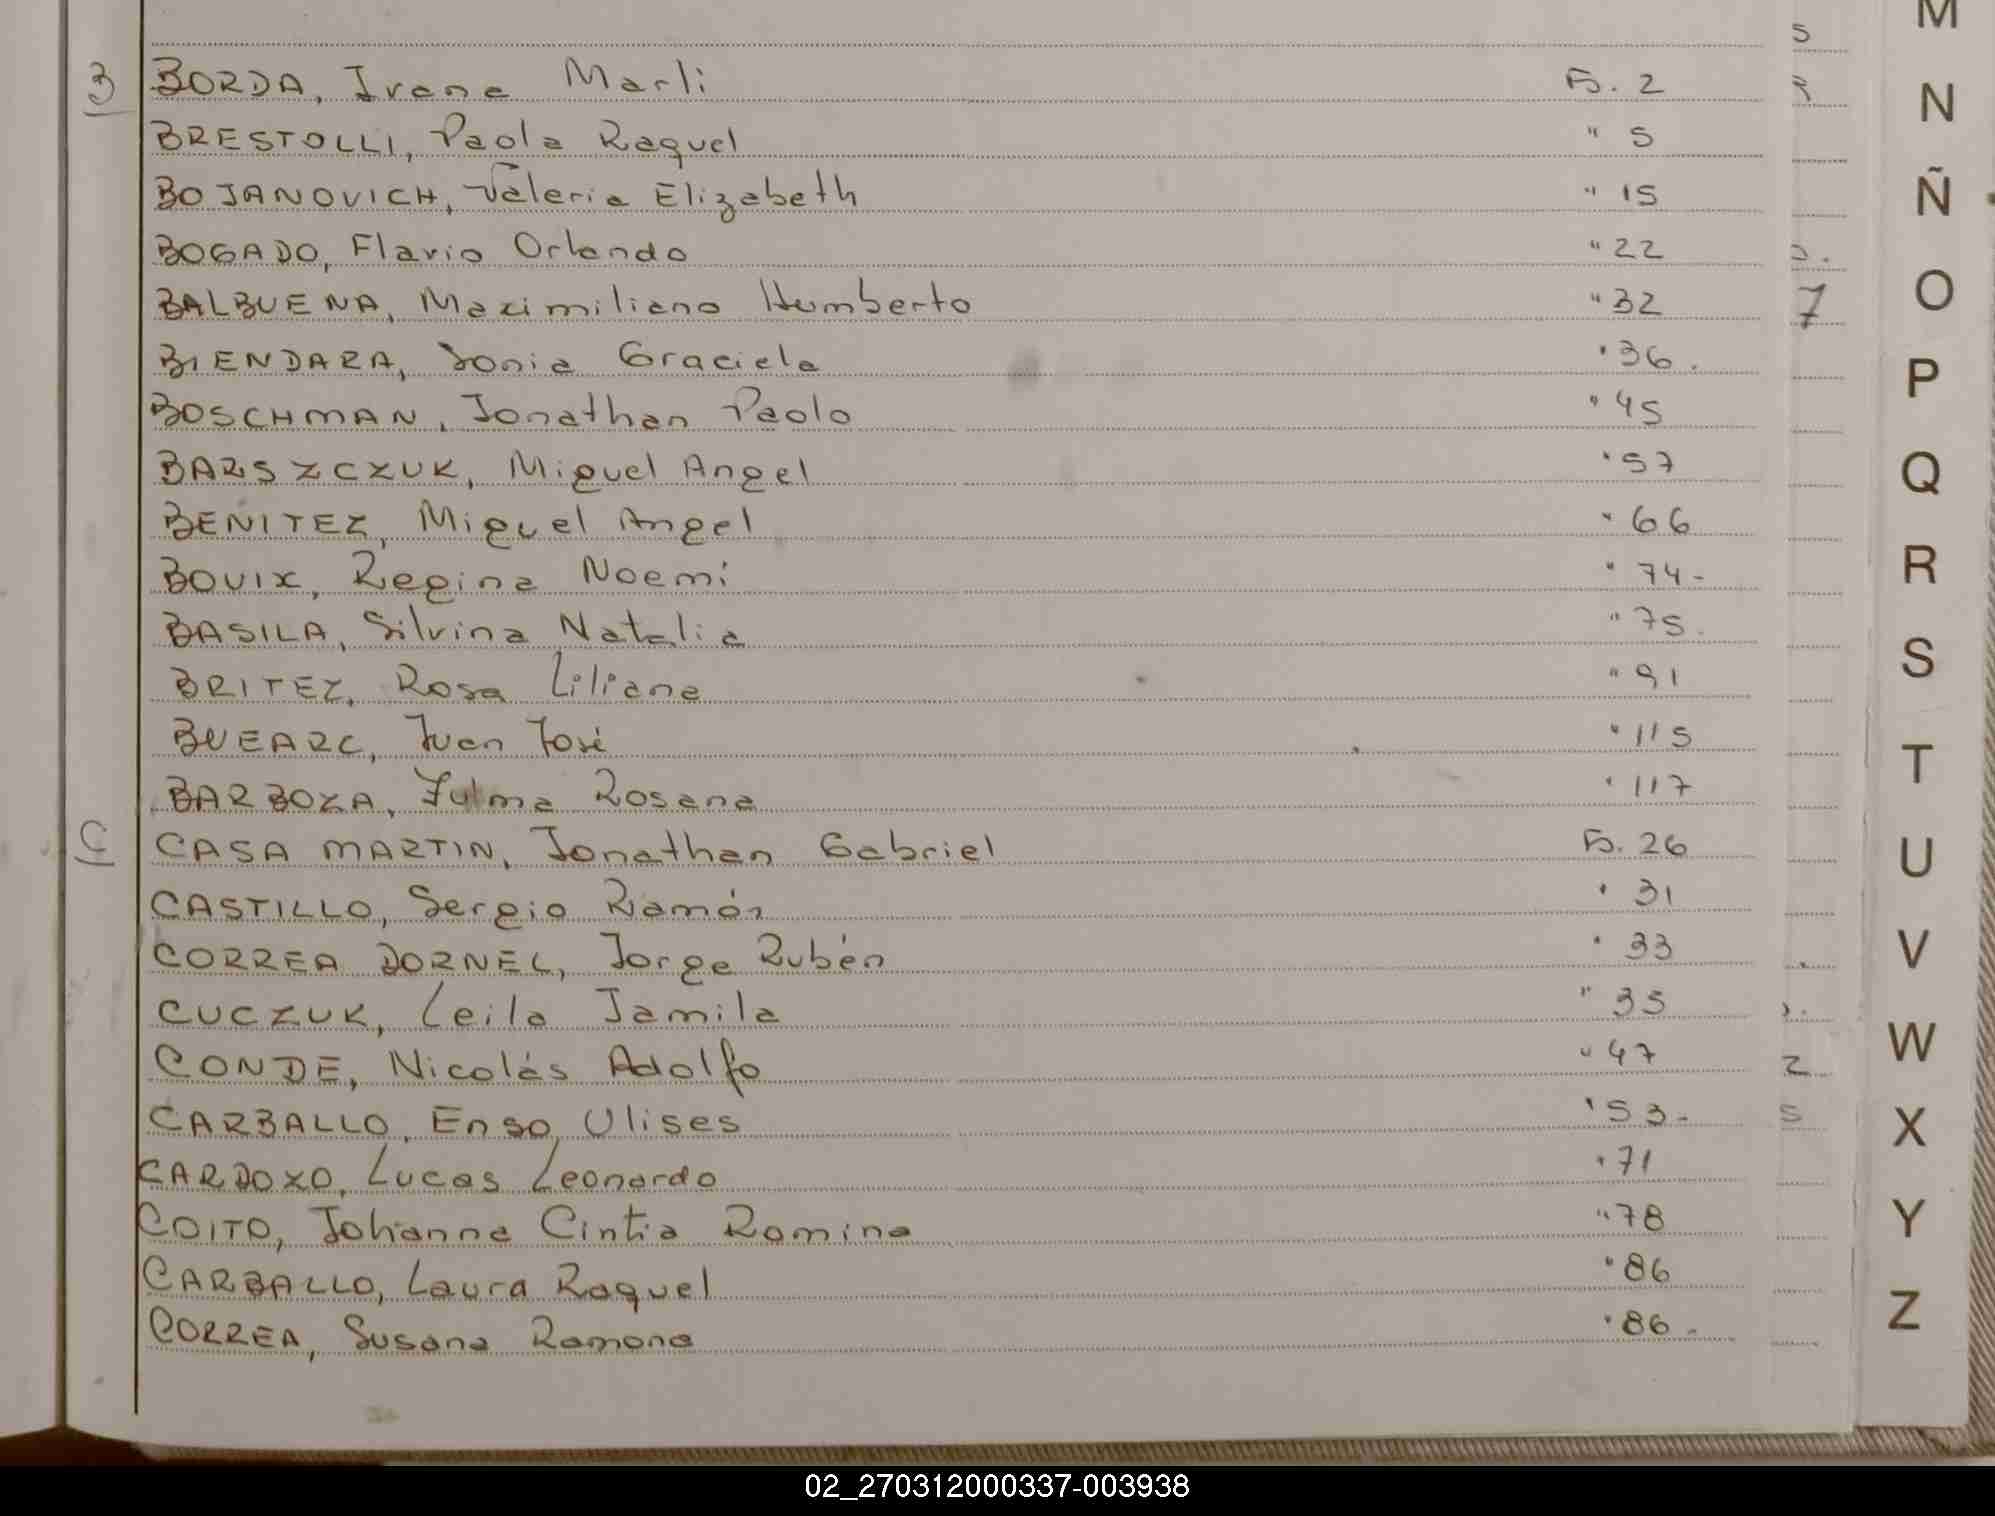 B BORDA, Irene Marli Fo. 2
BRESTOLLI, Paola Raquel " 5
BOJANOVICH, Valeria Elizabeth " 15
BOGADO, Flavio Orlando " 22
BALBUENA, Maximiliano Humberto " 32
BIENDARA, Sonia Graciela " 36.
BOSCHMAN, Jonathan Paolo " 45
BARSZCZUK, Miguel Angel " 57
BENITEZ, Miguel Angel " 66
BOUIX, Regina Noemi " 74-
BASILA, Silvina Natalia " 75.
BRITEZ, Rosa Liliana " 91
BUEARC, Juan José " 115
BARBOZA, Zulma Rosana " 117
C CASA MARTIN, Jonathan Gabriel Fo. 26
CASTILLO, Sergio Ramón " 31
CORREA DORNEL, Jorge Rubén " 33
CUCZUK, Leila Jamila " 35
CONDE, Nicolás Adolfo " 47
CARBALLO, Enso Ulises " 53-
CARDOZO, Lucas Leonardo " 71
COITO, Johanna Cintia Romina " 78
CARBALLO, Laura Raquel " 86
CORREA, Susana Ramona " 86-
5
7
2
5
M
N
Ñ
O
P
Q
R
S
T
U
V
W
X
Y
Z
02_270312000337-003938